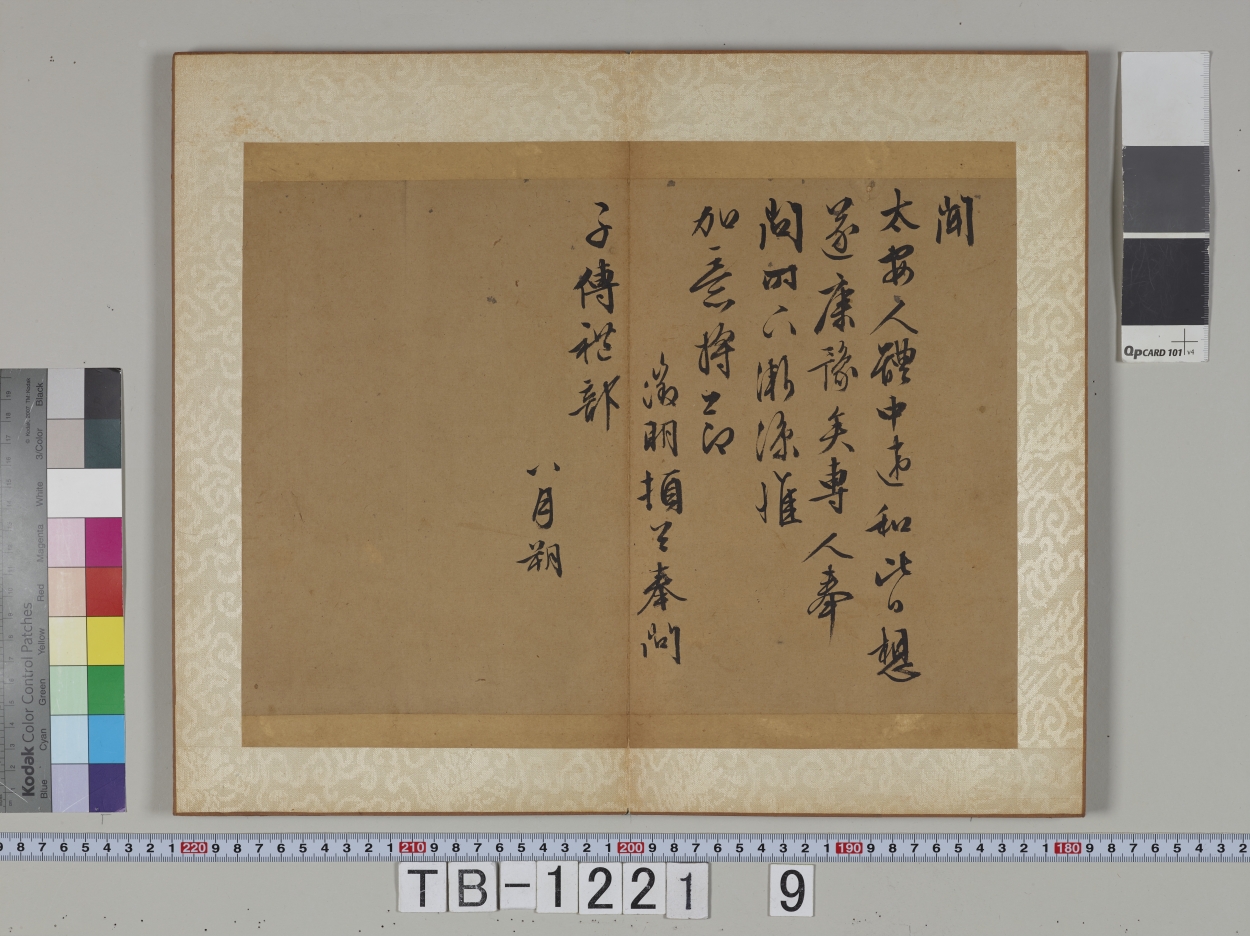 聞
太安人體中違和此日想
遂康豫矣專人奉
問時下漸涼惟
加意將
徵明頓首奉問
子傅禮部
八月朔
TB-1221 9
Kodak Color Control Patches
Blue Cyan Green Yellow Red Magenta White 3/Color Black
QPCARD 101 v4
9 8 7 6 5 4 3 2 1 220 9 8 7 6 5 4 3 2 1 210 9 8 7 6 5 4 3 2 1 200 9 8 7 6 5 4 3 2 1 190 9 8 7 6 5 4 3 2 1 180 9 8 7 6 5 4 3 2